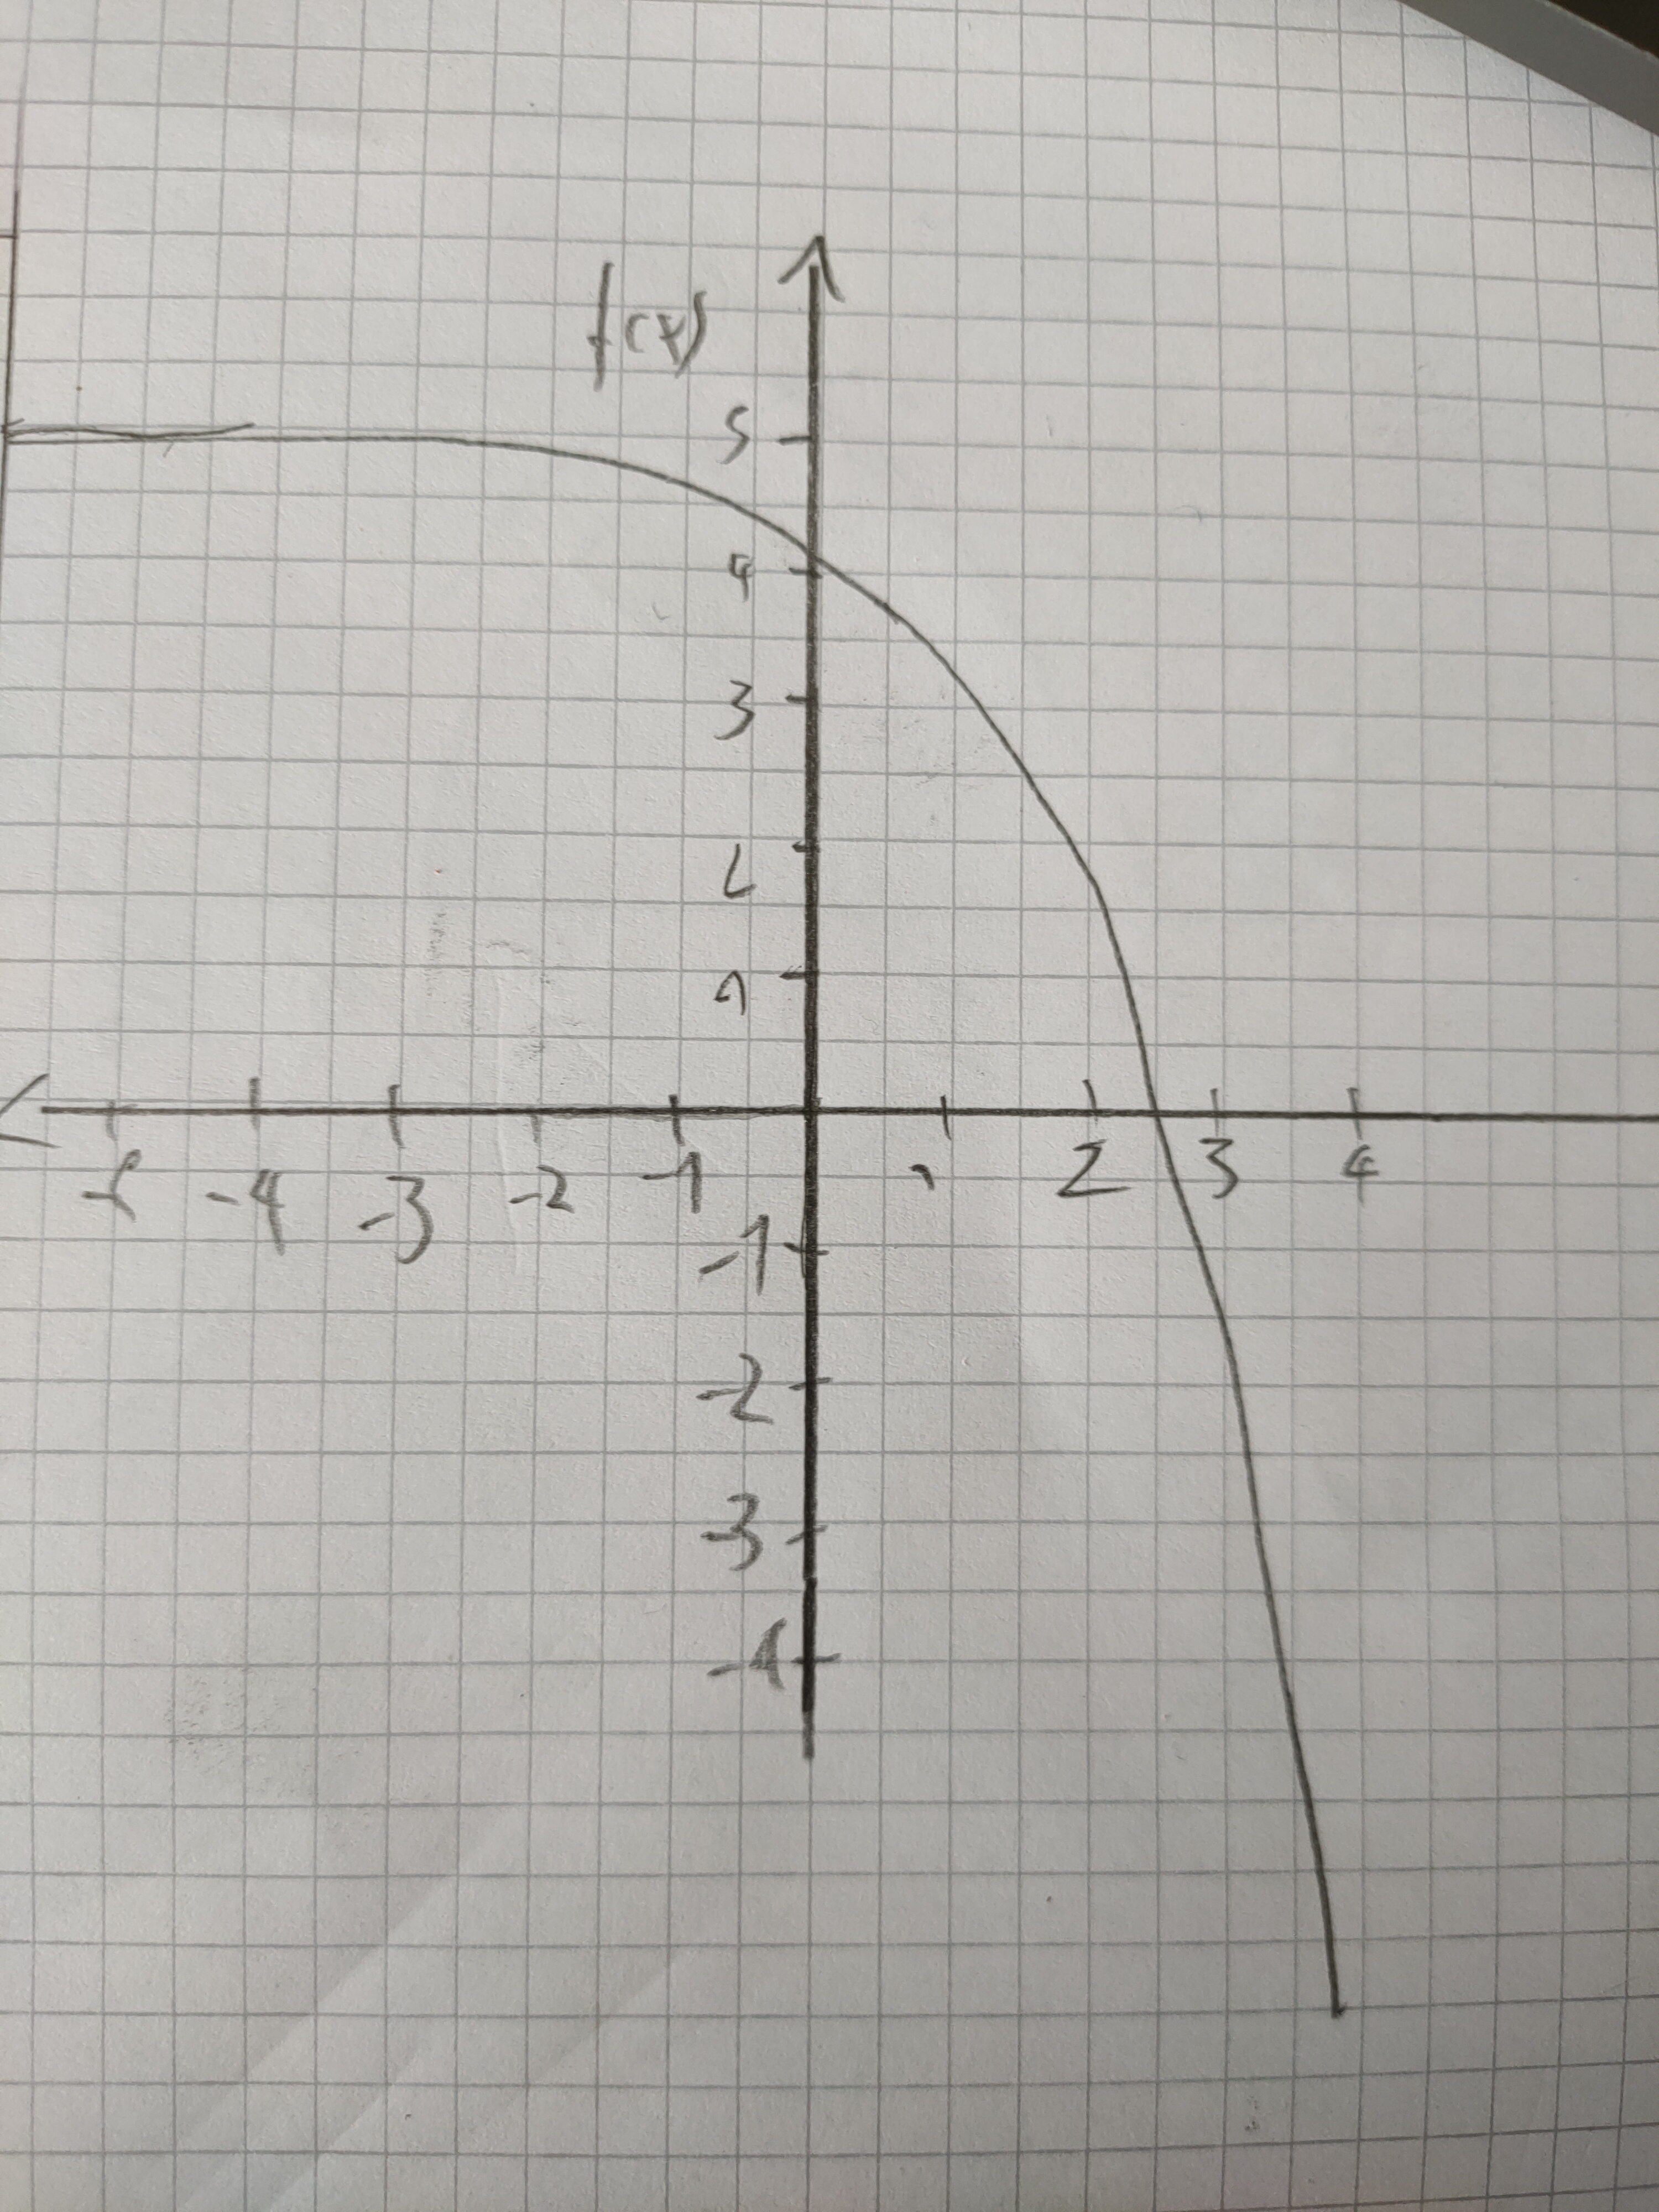 f(x)
5
4
3
2
1
-5 -4 -3 -2 -1 1 2 3 4
-1
-2
-3
-4